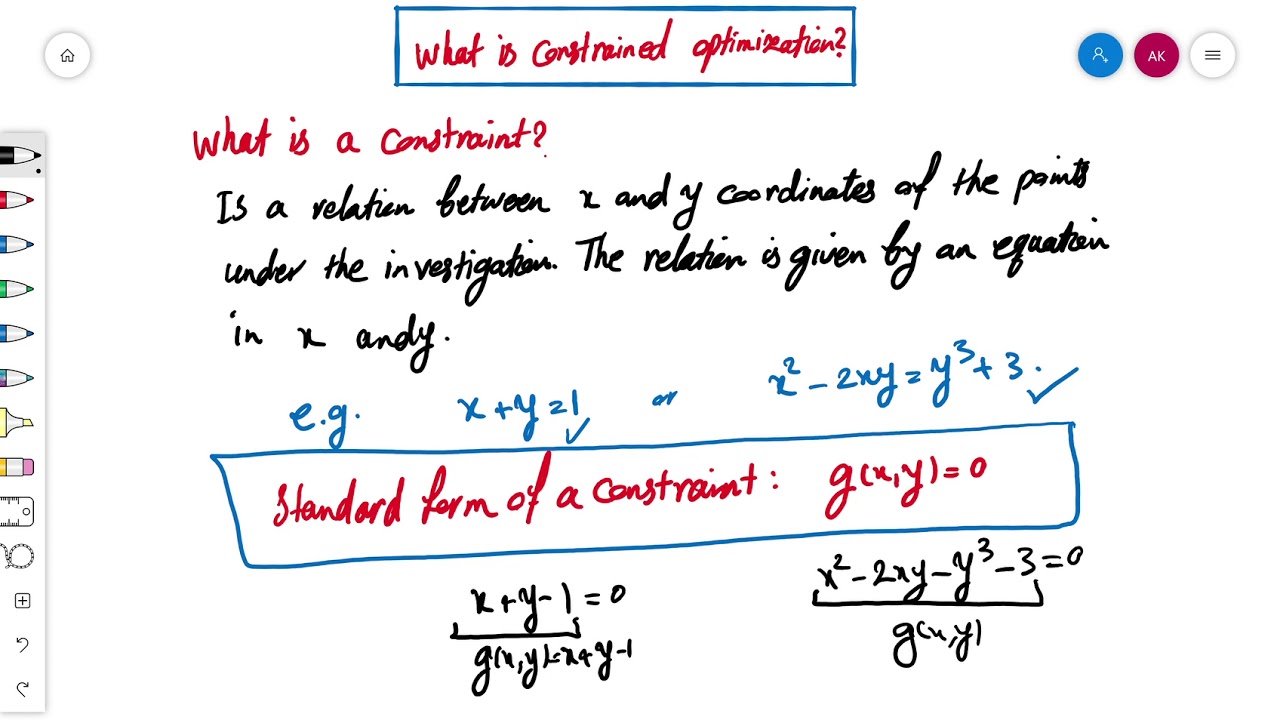 What is constrained optimization?
AK
What is a constraint?
Is a relation between x and y coordinates of the points
under the investigation. The relation is given by an equation
in x and y.
e.g. x + y = 1 or x² - 2xy = y³ + 3.
Standard form of a constraint: g(x,y) = 0
x + y - 1 = 0 x² - 2xy - y³ - 3 = 0
g(x,y) = x + y - 1 g(x,y)